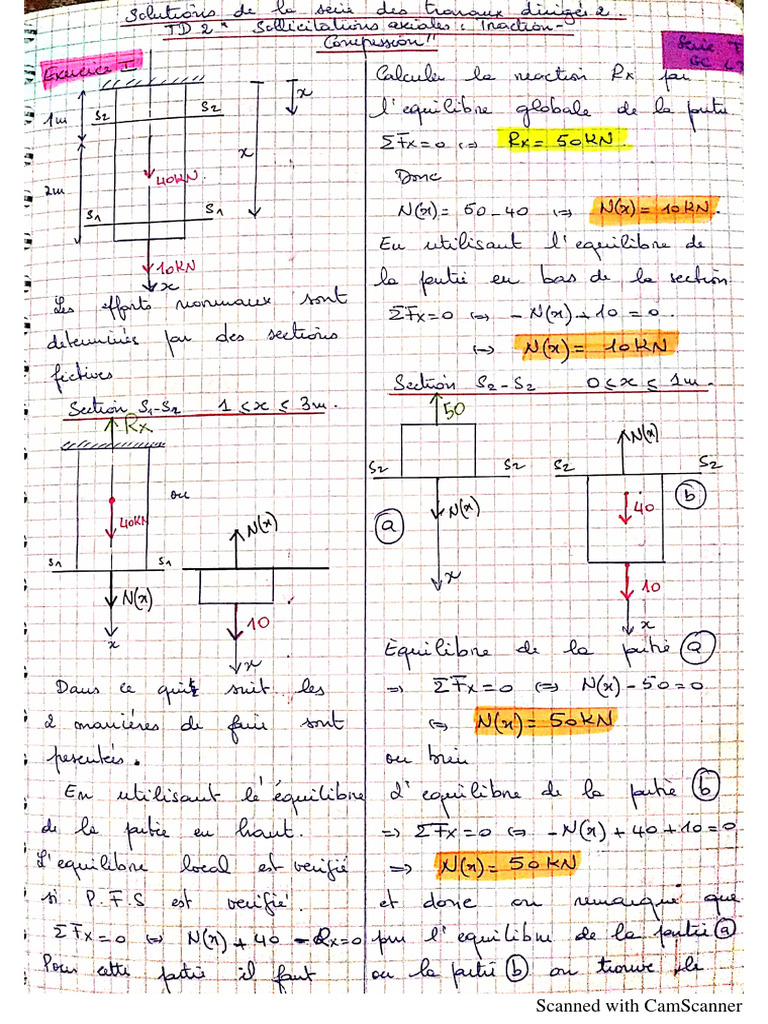 Solutions de la serie des travaux dirigés 2
TD 2 " Sollicitations axiales : Traction-
Compression "
Serie T
GC
Exercice I
1m
S2
S2
x
x
40KN
2m
S1
S1
10KN
x
Les efforts normaux sont
determinés par des sections
fictives
Section S1-S2 1 ≤ x ≤ 3m.
Rx
40KN
ou
S1
S1
N(x)
x
N(x)
10
x
Dans ce qui suit les
2 maniéres de faire sont
presentés.
En utilisant lé équilibre
de la partie en haut.
L'equilibre local est verifié
si P.F.S est verifié.
ΣFx=0 ⇔ N(x) + 40 - Rx=0
Pour cette partie il faut
Calculer la reaction Rx par
l'equilibre globale de la partie
ΣFx=0 ⇔ Rx = 50KN.
Donc
N(x) = 50 - 40 ⇔ N(x) = 10KN.
En utilisant l'equilibre de
la partie en bas de la section
ΣFx=0 ⇔ - N(x) + 10 = 0.
⇔ N(x) = 10KN
Section S2-S2 0 ≤ x ≤ 1m.
50
S2
S2
N(x)
a
x
N(x)
S2
S2
40
b
10
x
Equilibre de la partie a
⇒ ΣFx=0 ⇔ N(x) - 50 = 0
⇔ N(x) = 50KN
ou bien
d'equilibre de la partie b
⇒ ΣFx=0 ⇔ - N(x) + 40 + 10 = 0
⇒ N(x) = 50KN
et donc on remarque que
par l'equilibre de la partie a
ou la partie b on trouve le
Scanned with CamScanner